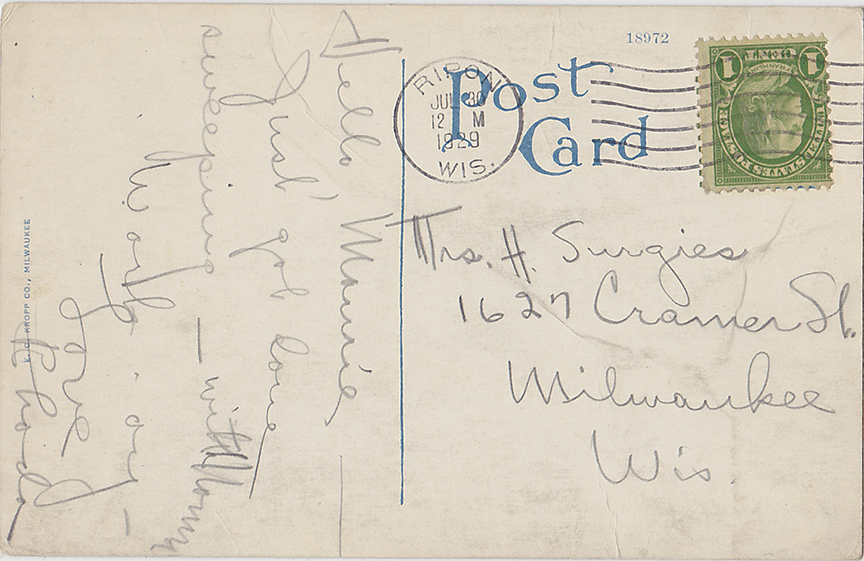 18972
Post
Card
RIPON
JUL 30
12 M
1929
WIS.
1 CENT 1
Mrs. H. Surgies
1627 Cramer St.
Milwaukee
Wis.
Hello Mamie,
Just got done
sweeping — with
Love
Rhoda
E.C. KROPP CO., MILWAUKEE